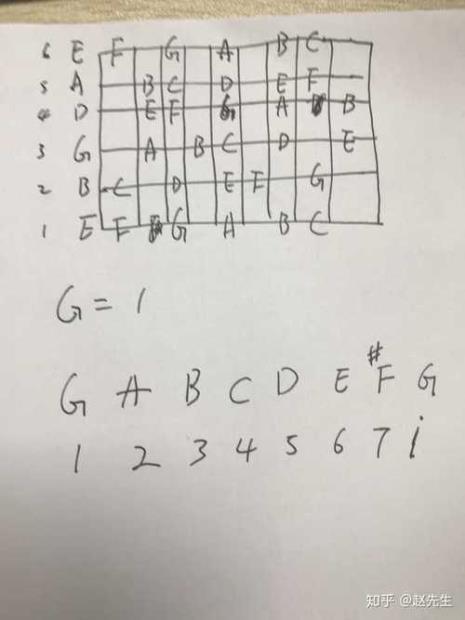 6 E F G A B C
5 A B C D E F
4 D E F G A B
3 G A B C D E
2 B C D E F G
1 E F G A B C
G = 1
G A B C D E #F G
1 2 3 4 5 6 7 i
知乎 @赵先生